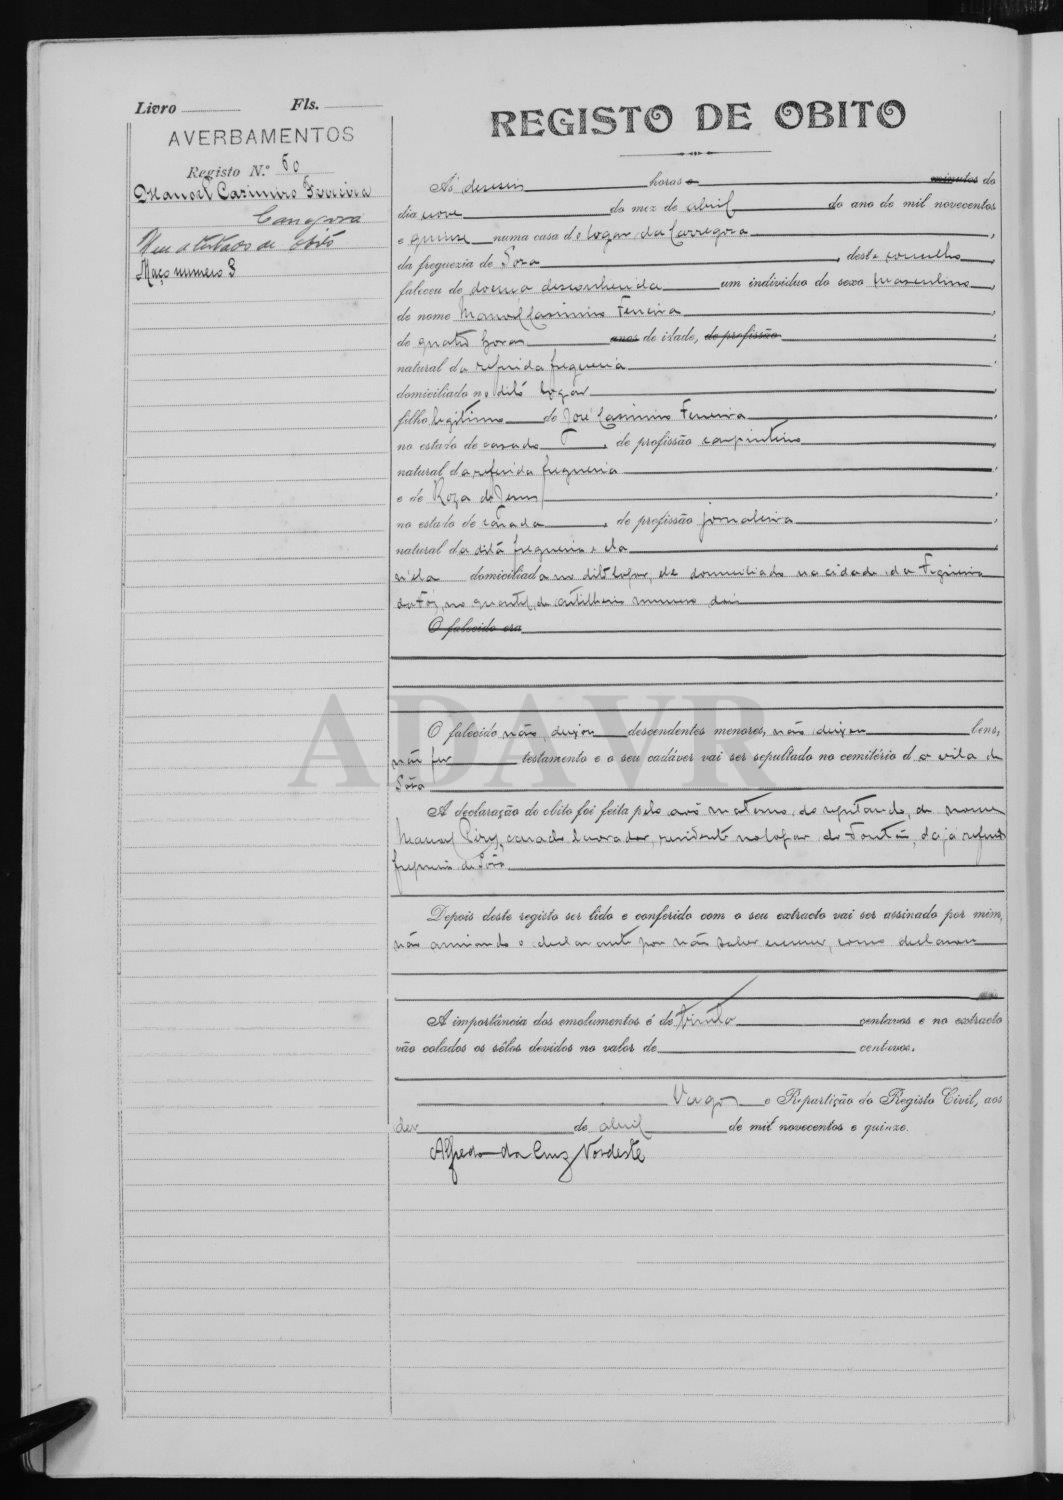 Livro Fls.
AVERBAMENTOS
Registo N.º 60
Manoel Casimiro Ferreira
Carregosa
atestado de obito
Maço numero 3
REGISTO DE OBITO
Ás deseseis horas e minutos do
dia nove do mez de abril do ano de mil novecentos
e quinze numa casa do logar da Carregosa,
da freguezia de Soza, deste concelho,
faleceu de doença desconhecida um individuo do sexo masculino,
de nome Manoel Casimiro Ferreira,
de quatro horas anos de idade, de profissão,
natural da referida freguesia,
domiciliado no dito logar,
filho legitimo de José Casimiro Ferreira,
no estado de casado, de profissão carpinteiro,
natural da referida freguesia,
e de Roza de Jesus,
no estado de casada, de profissão jornaleira,
natural da dita freguesia e ela
n'ela domiciliada no dito logar, ele domiciliado na cidade da Figueira
da Foz, no quartel de artilheria numero dois
O falecido era
ADAVR
O falecido não deixou descendentes menores, não deixou bens,
não fez testamento e o seu cadáver vai ser sepultado no cemitério da vila de
Sôza
A declaração do obito foi feita pelo avô materno do registando, de nome
Manoel Pires, casado lavrador, residente no logar de Fontão, da já referida
freguesia de Sôza.
Depois deste registo ser lido e conferido com o seu extracto vai ser assinado por mim,
não assinando o declarante por não saber escrever, como declarou
A importância dos emolumentos é de trinta centavos e no extracto
vão colados os sêlos devidos no valor de centavos.
Vagos e Repartição do Registo Civil, aos
dez de abril de mil novecentos e quinze.
Alfredo da Cruz Nordeste